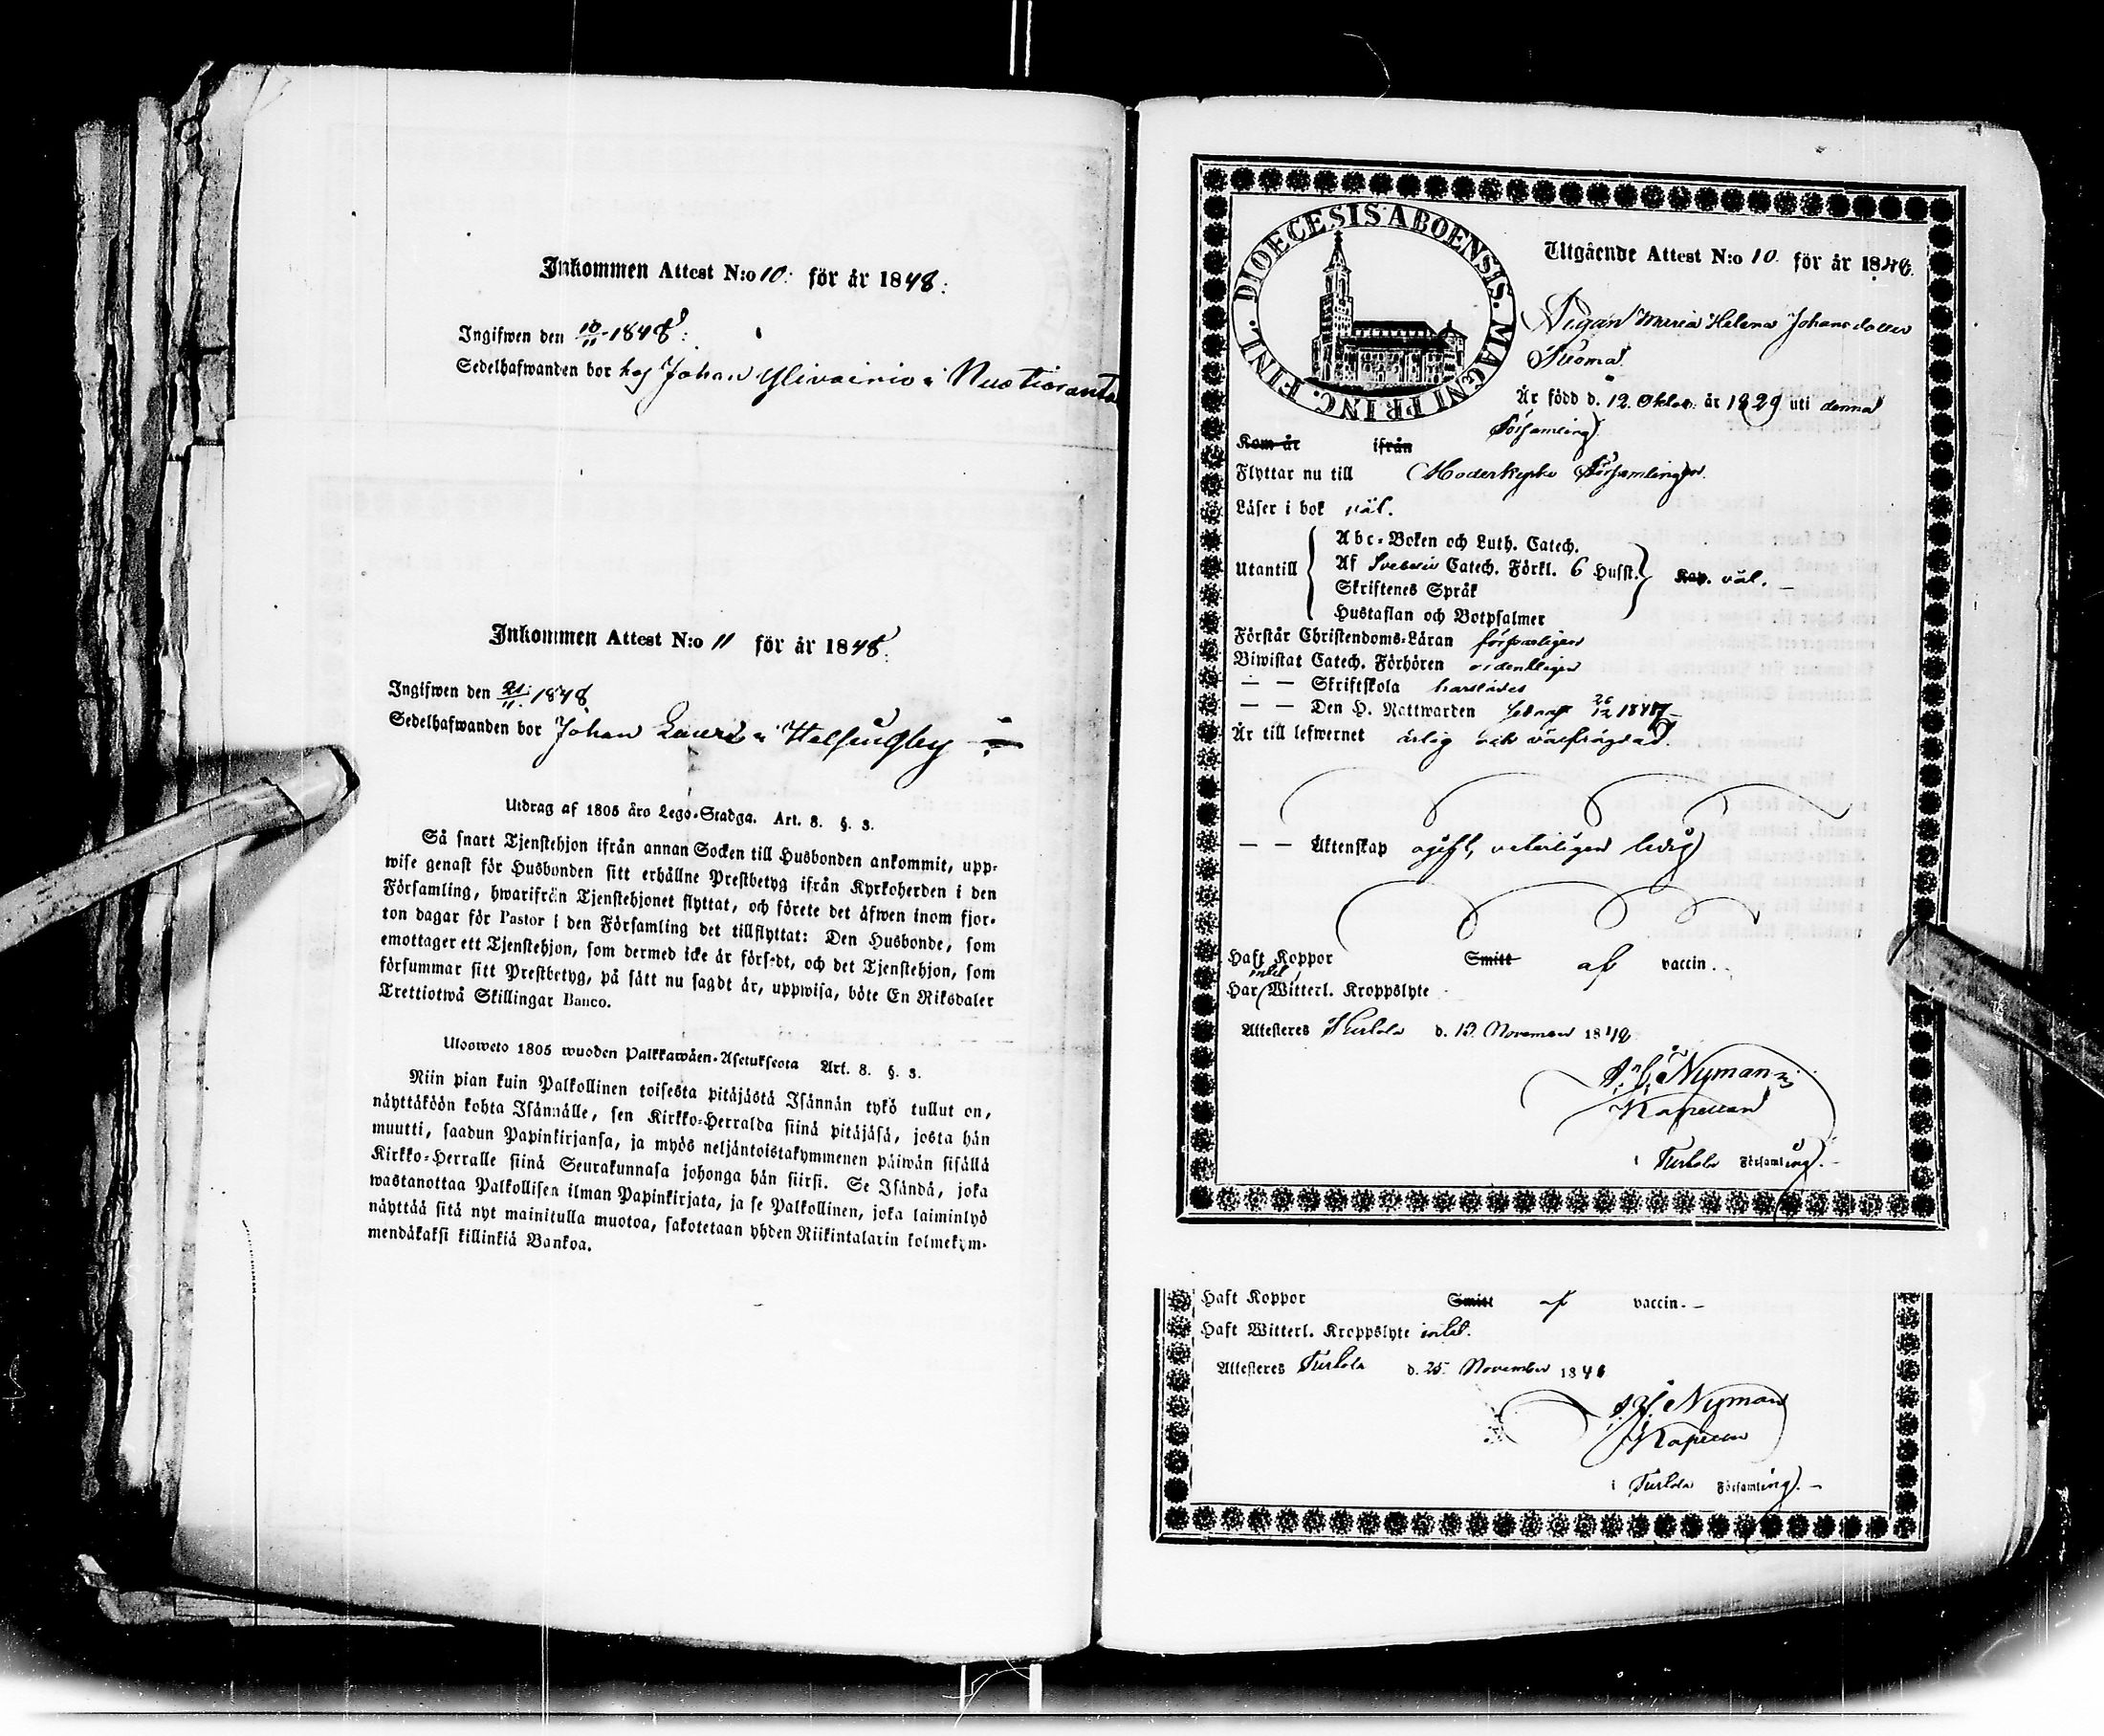 Inkommen Attest N:o 10: för år 1848:
Ingifwen den 10/11 1848:
Sedelhafwanden bor hos Johan Ylivainio i Nuotioranta
Inkommen Attest N:o 11 för år 1848:
Ingifwen den 1848
Sedelhafwanden bor Johan Lauri i Helsingby
Utdrag af 1805 års Lego-Stadga. Art. 8. §. 3.
Så snart Tjenstehjon ifrån annan Socken till Husbonden ankommit, upp-
wise genast för Husbonden sitt erhållne Prestbetyg ifrån Kyrkoherden i den
Församling, hwarifrån Tjenstehjonet flyttat, och förete det äfwen inom fjor-
ton dagar för Pastor i den Församling det tillflyttat: Den Husbonde, som
emottager ett Tjenstehjon, som dermed icke är försedt, och det Tjenstehjon, som
försummar sitt Prestbetyg, på sätt nu sagdt är, uppwisa, böte En Riksdaler
Trettiotwå Skillingar Banco.
Ulosweto 1805 wuoden Palkkawäen-Asetuksesta Art. 8. §. 3.
Niin pian kuin Palkollinen toisesta pitäjästä Isännän tykö tullut on,
näyttäköön kohta Isännälle, sen Kirkko-Herralda siinä pitäjäsä, josta hän
muutti, saadun Papinkirjansa, ja myös neljäntoistakymmenen päiwän sisällä
Kirkko-Herralle siinä Seurakunnasa johonga hän siirsi. Se Isändä, joka
wastanottaa Palkollisen ilman Papinkirjata, ja se Palkollinen, joka laiminlyö
näyttää sitä nyt mainitulla muotoa, sakotetaan yhden Riikintalarin kolmekym-
mendäkaksi killinkiä Bankoa.
DIOECESIS ABOENSIS. MAGNI PRINC. FINL.
Utgående Attest N:o 10. för år 1848.
Pigan Maria Helena Johansdotter
Är född d. 12 Oktob. år 1829 uti denna
Församling.
Kom år ifrån
Flyttar nu till Moderkyrko Församlingen.
Läser i bok väl.
Utantill
Abc-Boken och Luth. Catech.
Af Svebelii Catech. Förkl. 6 Husst. Kap. väl.
Skriftenes Språk
Hustaflan och Botpsalmer
Förstår Christendoms-Läran försvarligen
Biwistat Catech. Förhören ordentligen
— — Skriftskola
— — Den H. Nattwarden sednast 26/12 1847
Är till lefwernet ärlig och välfrägdad.
— — Äktenskap ogift, veterligen ledig
Haft Koppor Smitt af vaccin.
Har intet Witterl. Kroppslyte
Attesteres Turtola d. 10 November 1848
Nyman
Kapellan
i Turtola Församling.
Haft Koppor Smitt af vaccin.
Haft Witterl. Kroppslyte intet.
Attesteres Turtola d. 25 November 1848
Nyman
Kapellan
i Turtola Församling.